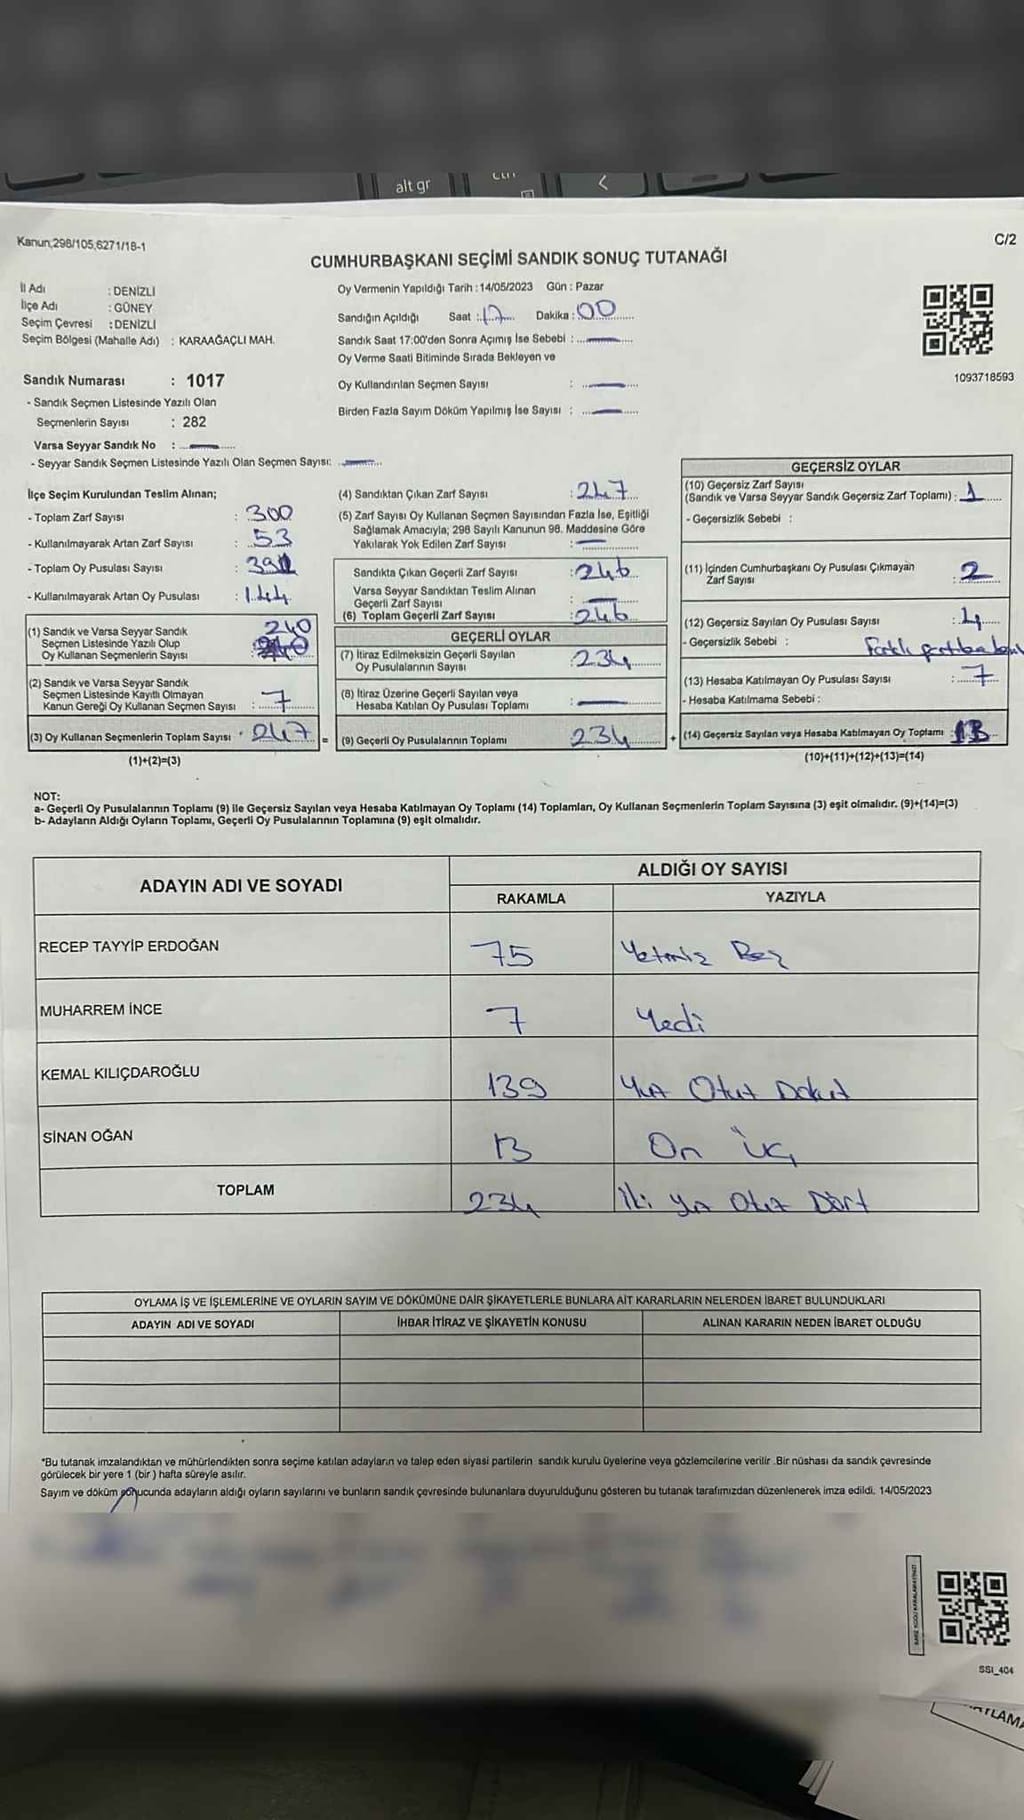 alt gr
ctrl
<
Kanun,298/105,6271/18-1
C/2
CUMHURBAŞKANI SEÇİMİ SANDIK SONUÇ TUTANAĞI
İl Adı : DENİZLİ
İlçe Adı : GÜNEY
Seçim Çevresi : DENİZLİ
Seçim Bölgesi (Mahalle Adı) : KARAAĞAÇLI MAH.
Oy Vermenin Yapıldığı Tarih : 14/05/2023 Gün : Pazar
Sandığın Açıldığı Saat : 17 Dakika : 00
Sandık Saat 17:00'den Sonra Açımış İse Sebebi :
Oy Verme Saati Bitiminde Sırada Bekleyen ve
Oy Kullandırılan Seçmen Sayısı :
Birden Fazla Sayım Döküm Yapılmış İse Sayısı :
1093718593
Sandık Numarası : 1017
- Sandık Seçmen Listesinde Yazılı Olan
Seçmenlerin Sayısı : 282
Varsa Seyyar Sandık No :
- Seyyar Sandık Seçmen Listesinde Yazılı Olan Seçmen Sayısı:
İlçe Seçim Kurulundan Teslim Alınan;
- Toplam Zarf Sayısı : 300
- Kullanılmayarak Artan Zarf Sayısı : 53
- Toplam Oy Pusulası Sayısı :
- Kullanılmayarak Artan Oy Pusulası : 144
(1) Sandık ve Varsa Seyyar Sandık
Seçmen Listesinde Yazılı Olup
Oy Kullanan Seçmenlerin Sayısı
240
(2) Sandık ve Varsa Seyyar Sandık
Seçmen Listesinde Kayıtlı Olmayan
Kanun Gereği Oy Kullanan Seçmen Sayısı : 7
(3) Oy Kullanan Seçmenlerin Toplam Sayısı : 247 =
(1)+(2)=(3)
(4) Sandıktan Çıkan Zarf Sayısı : 247
(5) Zarf Sayısı Oy Kullanan Seçmen Sayısından Fazla İse, Eşitliği
Sağlamak Amacıyla; 298 Sayılı Kanunun 98. Maddesine Göre
Yakılarak Yok Edilen Zarf Sayısı :
Sandıkta Çıkan Geçerli Zarf Sayısı : 246
Varsa Seyyar Sandıktan Teslim Alınan
Geçerli Zarf Sayısı :
(6) Toplam Geçerli Zarf Sayısı : 246
GEÇERLİ OYLAR
(7) İtiraz Edilmeksizin Geçerli Sayılan
Oy Pusulalarının Sayısı : 234
(8) İtiraz Üzerine Geçerli Sayılan veya
Hesaba Katılan Oy Pusulası Toplamı :
(9) Geçerli Oy Pusulalarının Toplamı 234 +
GEÇERSİZ OYLAR
(10) Geçersiz Zarf Sayısı
(Sandık ve Varsa Seyyar Sandık Geçersiz Zarf Toplamı) : 1
- Geçersizlik Sebebi :
(11) İçinden Cumhurbaşkanı Oy Pusulası Çıkmayan
Zarf Sayısı : 2
(12) Geçersiz Sayılan Oy Pusulası Sayısı : 4
- Geçersizlik Sebebi : Farklı
(13) Hesaba Katılmayan Oy Pusulası Sayısı : 7
- Hesaba Katılmama Sebebi :
(14) Geçersiz Sayılan veya Hesaba Katılmayan Oy Toplamı : 13
(10)+(11)+(12)+(13)=(14)
NOT:
a- Geçerli Oy Pusulalarının Toplamı (9) ile Geçersiz Sayılan veya Hesaba Katılmayan Oy Toplamı (14) Toplamları, Oy Kullanan Seçmenlerin Toplam Sayısına (3) eşit olmalıdır. (9)+(14)=(3)
b- Adayların Aldığı Oyların Toplamı, Geçerli Oy Pusulalarının Toplamına (9) eşit olmalıdır.
ADAYIN ADI VE SOYADI
ALDIĞI OY SAYISI
RAKAMLA YAZIYLA
RECEP TAYYİP ERDOĞAN 75 Yetmiş Beş
MUHARREM İNCE 7 Yedi
KEMAL KILIÇDAROĞLU 139 Yüz Otuz Dokuz
SİNAN OĞAN 13 On Üç
TOPLAM 234 İki Yüz Otuz Dört
OYLAMA İŞ VE İŞLEMLERİNE VE OYLARIN SAYIM VE DÖKÜMÜNE DAİR ŞİKAYETLERLE BUNLARA AİT KARARLARIN NELERDEN İBARET BULUNDUKLARI
ADAYIN ADI VE SOYADI İHBAR İTİRAZ VE ŞİKAYETİN KONUSU ALINAN KARARIN NEDEN İBARET OLDUĞU
*Bu tutanak imzalandıktan ve mühürlendikten sonra seçime katılan adayların ve talep eden siyasi partilerin sandık kurulu üyelerine veya gözlemcilerine verilir .Bir nüshası da sandık çevresinde
görülecek bir yere 1 (bir ) hafta süreyle asılır.
Sayım ve döküm sonucunda adayların aldığı oyların sayılarını ve bunların sandık çevresinde bulunanlara duyurulduğunu gösteren bu tutanak tarafımızdan düzenlenerek imza edildi. 14/05/2023
SSI_404